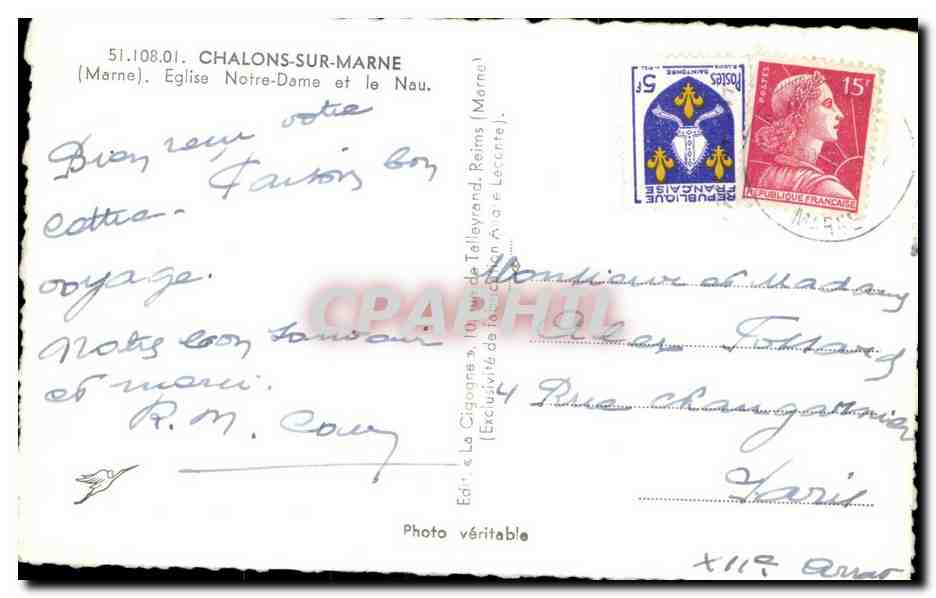 51.108.01. CHALONS-SUR-MARNE
(Marne). Eglise Notre-Dame et le Nau.
Bien reçu votre
cattea. Faisons bon
voyage.
Notre bon souvenir
et merci.
R. M.
Edit. « La Cigogne », 10, rue de Talleyrand, Reims (Marne)
(Exclusivité de fabrication André Leconte).
Photo véritable
POSTES
5F
SAINTONGE
REPUBLIQUE
FRANÇAISE
POSTES
15F
REPUBLIQUE FRANCAISE
MARNE
CPAPHIL
Monsieur et Madame
4 Rue Changarnier
Paris
XIIe Arrdt